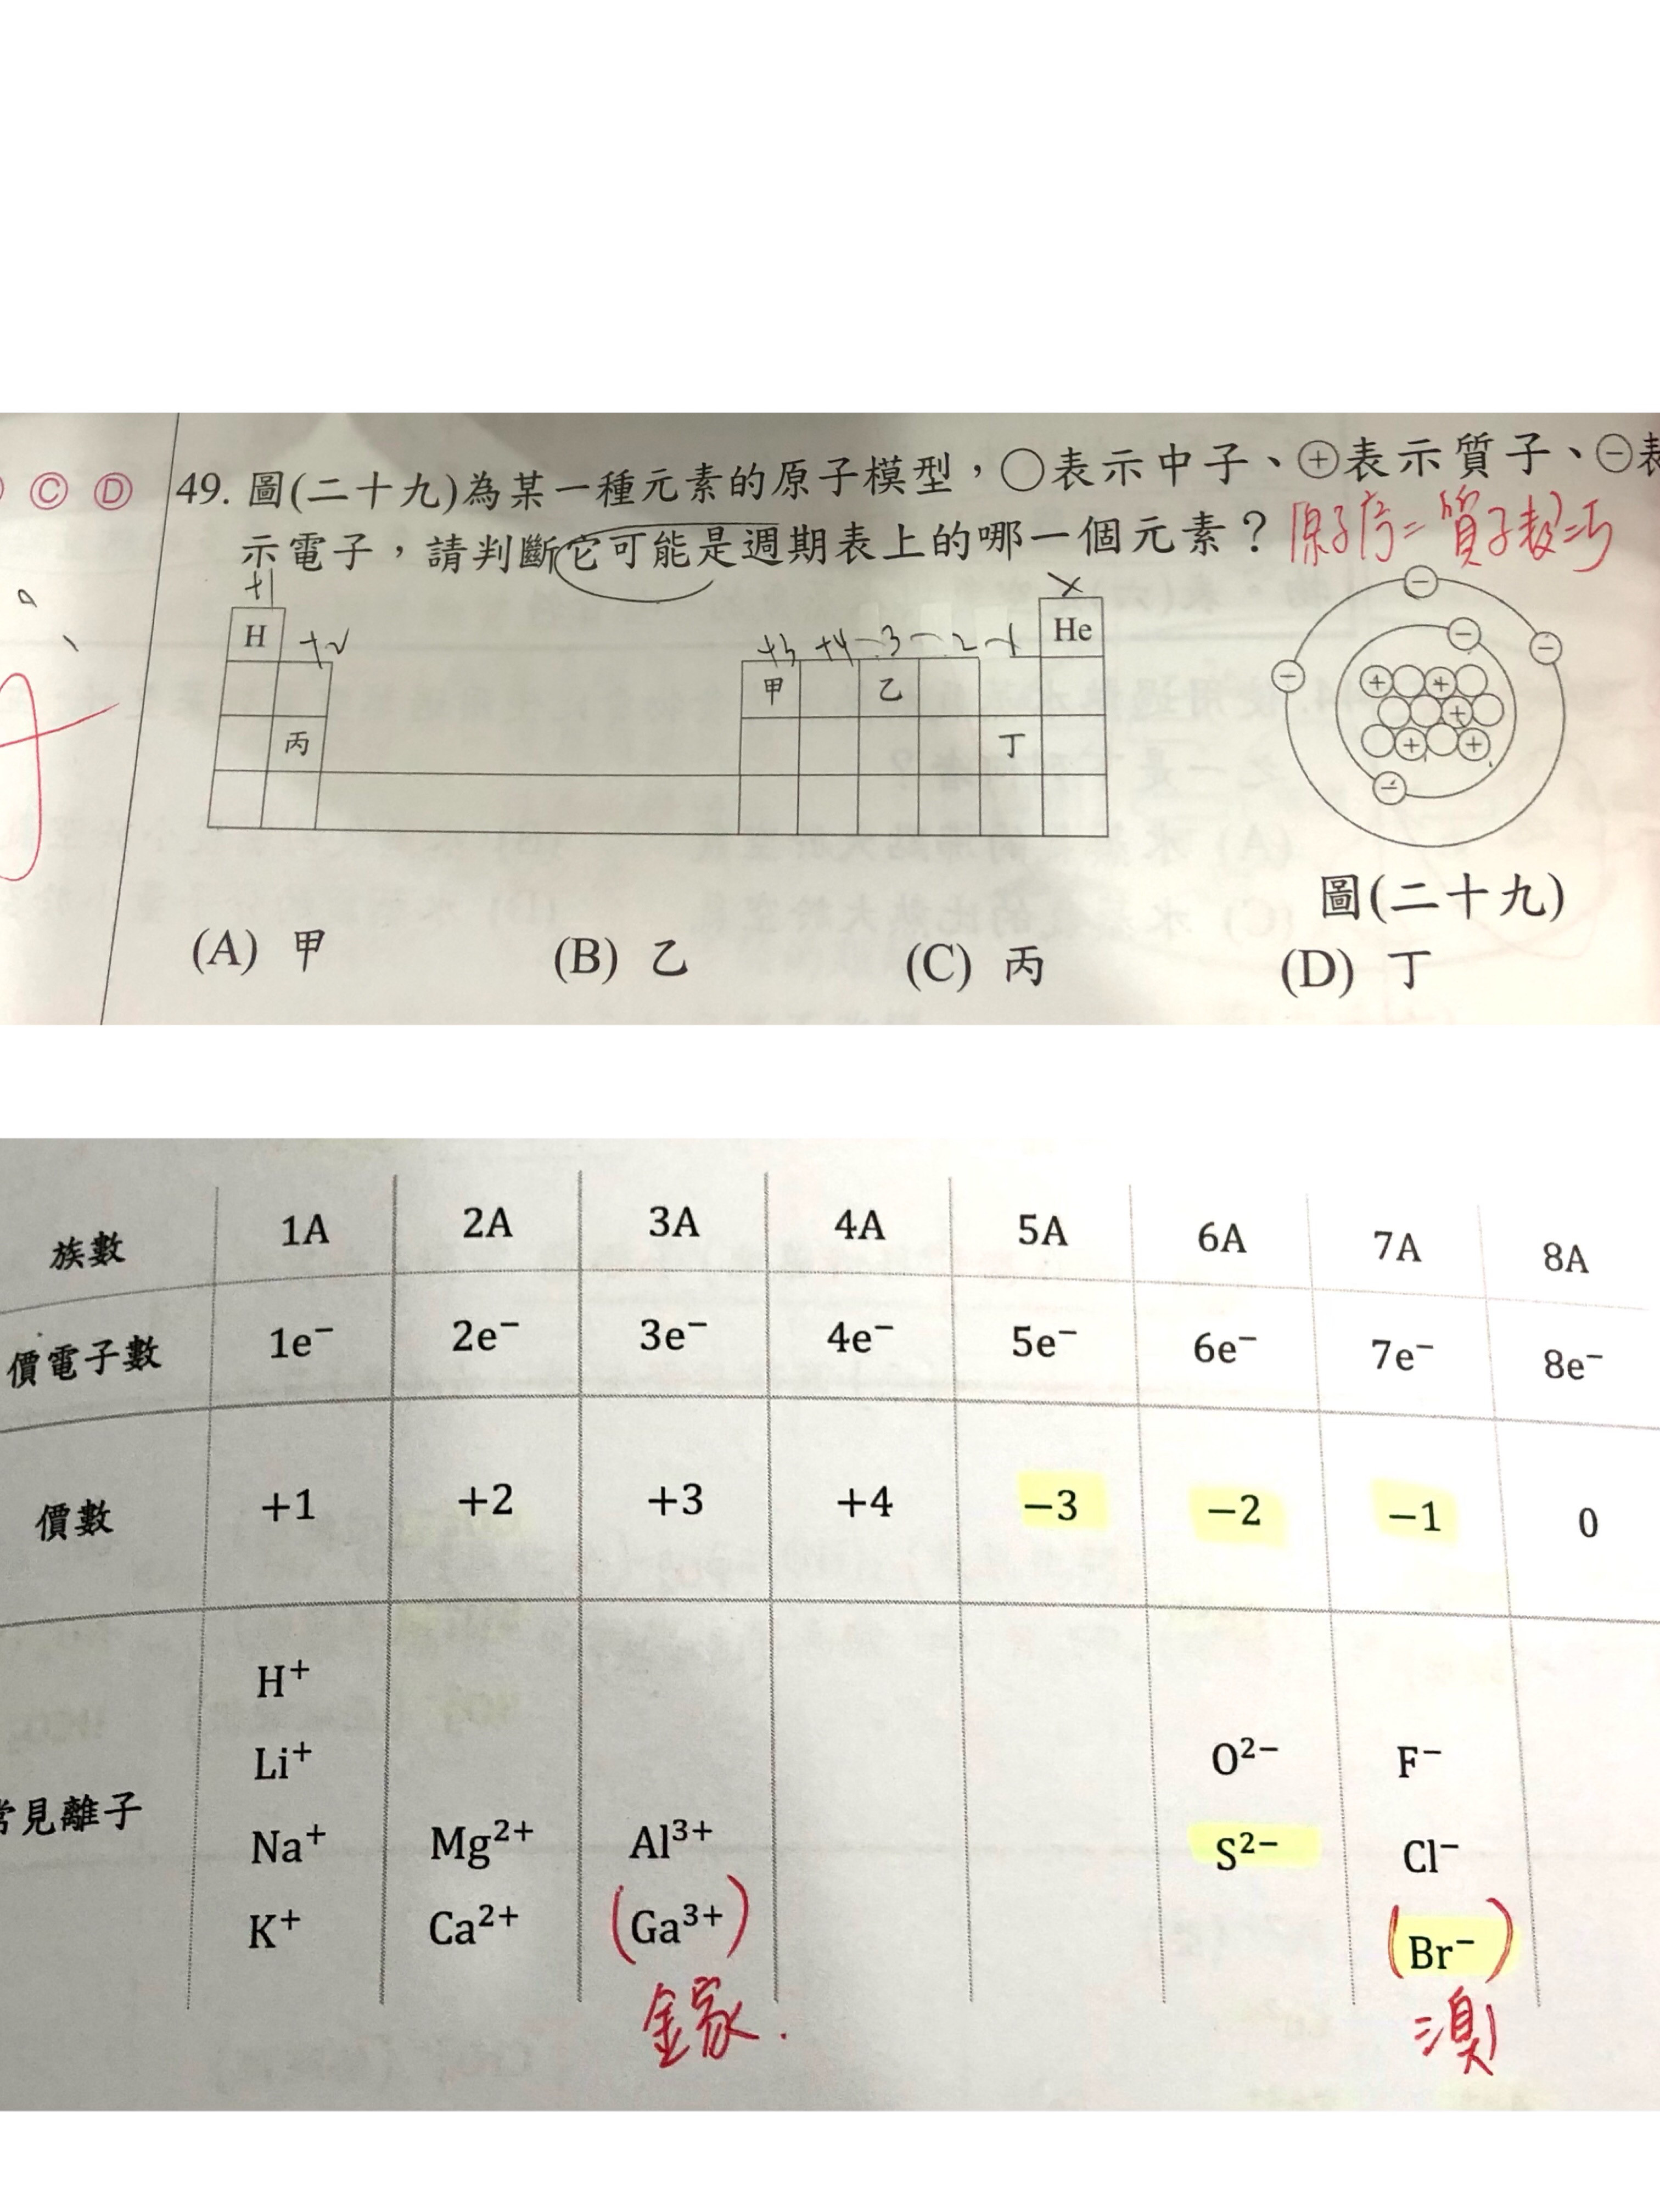 Ⓒ Ⓓ 49. 圖(二十九)為某一種元素的原子模型，○表示中子、⊕表示質子、⊖表
示電子，請判斷它可能是週期表上的哪一個元素？ 原子序=質子數=5
+1 ×
H +2 +3 +4 -3 -2 -1 He
甲 乙
丙 丁
圖(二十九)
(A) 甲 (B) 乙 (C) 丙 (D) 丁
族數 1A 2A 3A 4A 5A 6A 7A 8A
價電子數 1e⁻ 2e⁻ 3e⁻ 4e⁻ 5e⁻ 6e⁻ 7e⁻ 8e⁻
價數 +1 +2 +3 +4 −3 −2 −1 0
H⁺
Li⁺ O²⁻ F⁻
常見離子 Na⁺ Mg²⁺ Al³⁺ S²⁻ Cl⁻
K⁺ Ca²⁺ (Ga³⁺) (Br⁻)
鎵. 溴